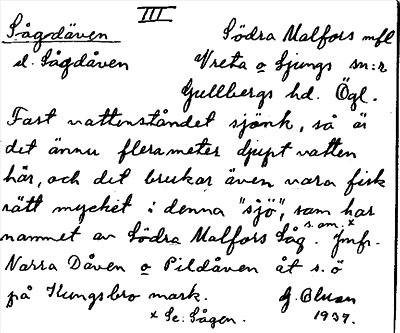 III
Sågdäven Södra Malfors mfl
el. Sågdåven Vreta o Ljungs sn:r
Gullbergs hd. Ögl.
Fast vattenståndet sjönk, så är
det ännu flera meter djupt vatten
här, och det brukar även vara fisk
rätt mycket i denna "sjö", som har
s.om. x
namnet av Södra Malfors Såg. Jmfr.
Narra Dåven o Pildåven åt s.ö
på Kungsbro mark. G.
x Se: Sågen. 1937.